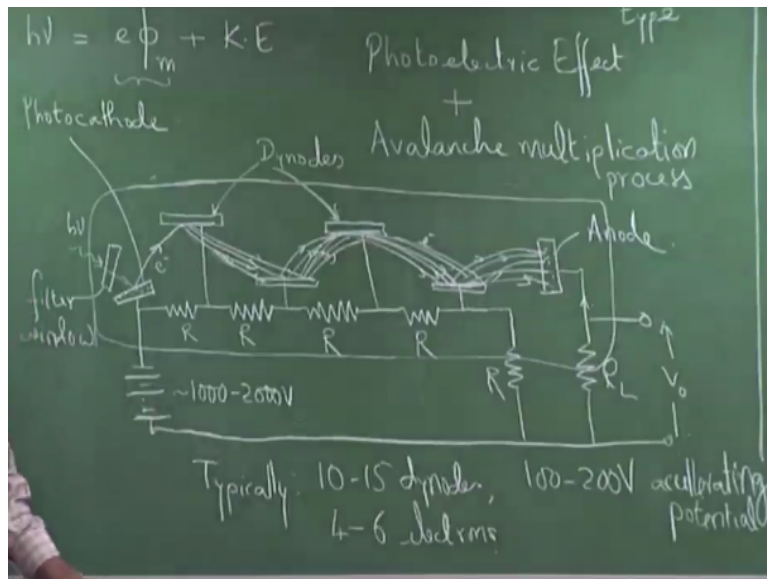 type
hν = eϕm + K.E
Photoelectric Effect
+
Avalanche multiplication
process
Photocathode
Dynodes
hν
e⁻
e⁻
Anode
filter
window
R
R
R
R
R
RL
V₀
~1000-2000V
Typically: 10-15 dynodes, 100-200V accellerating
potential
4-6